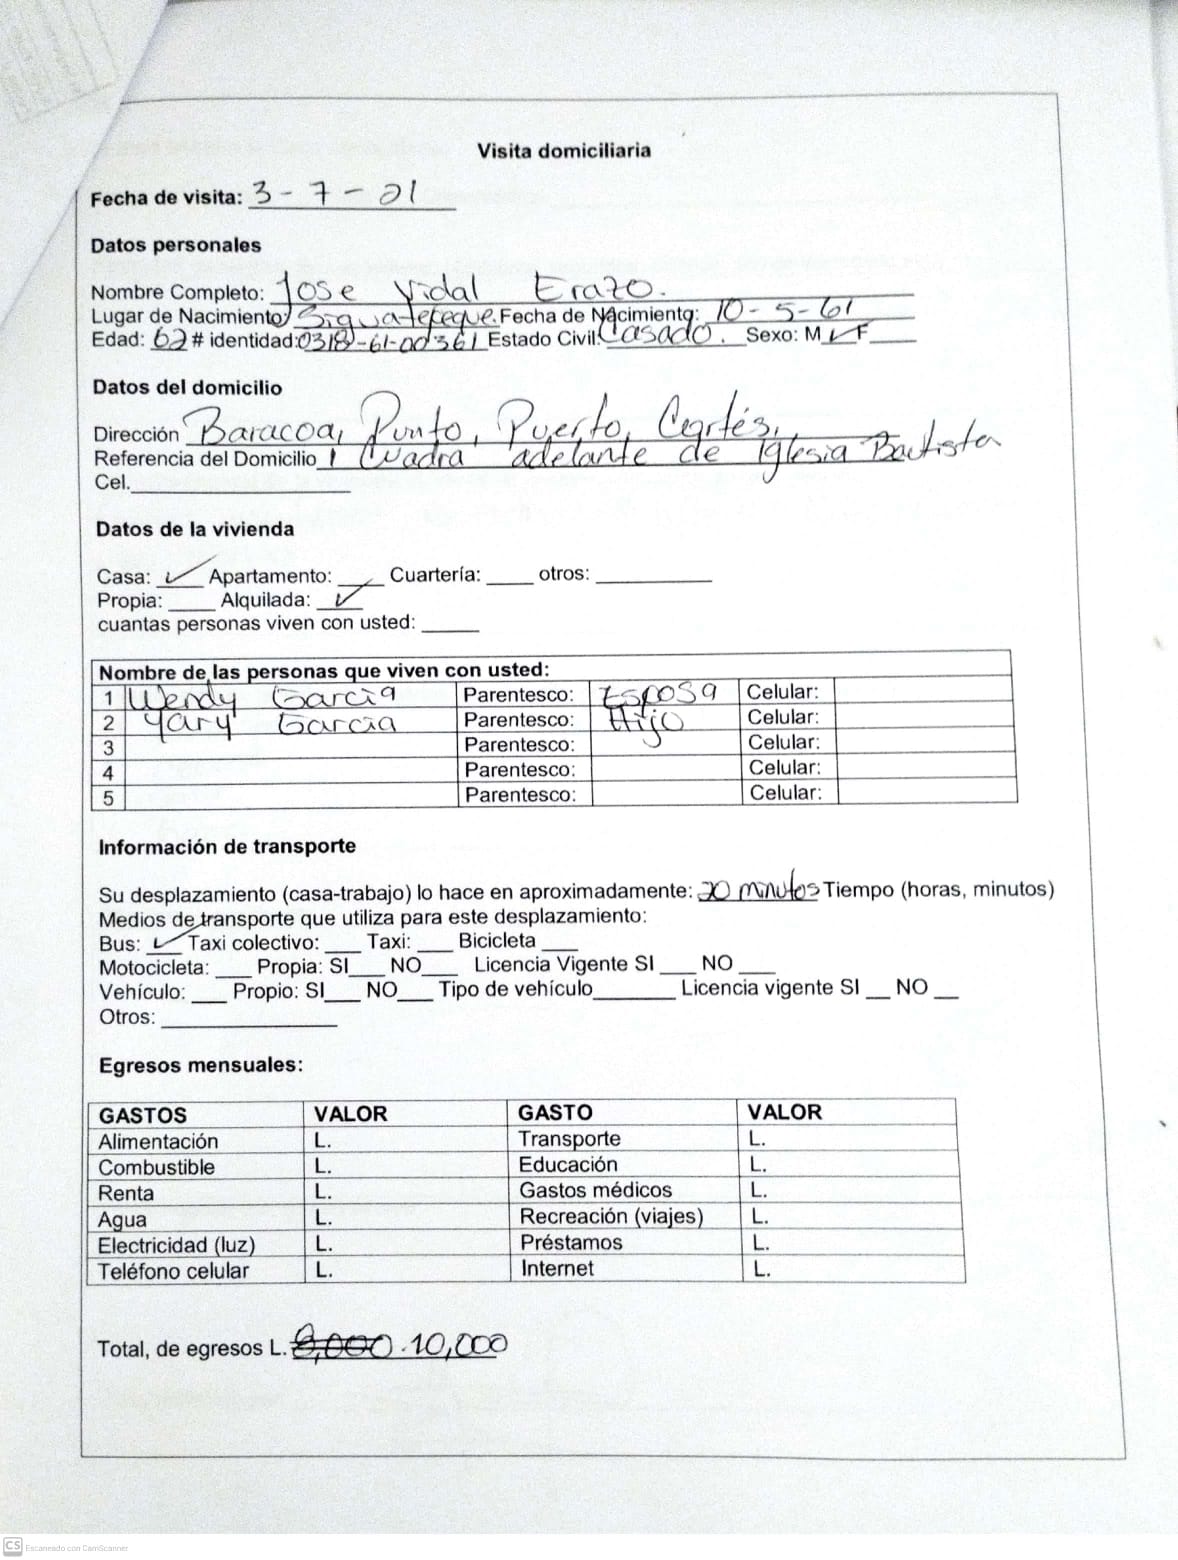 Visita domiciliaria
Fecha de visita: 3-7-21
Datos personales
Nombre Completo: Jose Vidal Erazo.
Lugar de Nacimiento: Siguatepeque. Fecha de Nacimiento: 10-5-61
Edad: 62 # identidad: 0318-61-00361 Estado Civil: Casado. Sexo: M ✓ F___
Datos del domicilio
Dirección Baracoa, Punto, Puerto, Cortés,
Referencia del Domicilio 1 Cuadra adelante de Iglesia Bautista
Cel.___
Datos de la vivienda
Casa: ✓ Apartamento: ___ Cuartería: ___ otros: ___
Propia: ___ Alquilada: ✓
cuantas personas viven con usted: ___
Nombre de las personas que viven con usted:
1 Wendy Garcia Parentesco: Esposa Celular:
2 Yary Garcia Parentesco: Hijo Celular:
3 Parentesco: Celular:
4 Parentesco: Celular:
5 Parentesco: Celular:
Información de transporte
Su desplazamiento (casa-trabajo) lo hace en aproximadamente: 20 minutos Tiempo (horas, minutos)
Medios de transporte que utiliza para este desplazamiento:
Bus: ✓ Taxi colectivo: ___ Taxi: ___ Bicicleta ___
Motocicleta: ___ Propia: SI___ NO___ Licencia Vigente SI ___ NO ___
Vehículo: ___ Propio: SI___ NO___ Tipo de vehículo___ Licencia vigente SI __ NO __
Otros: ___
Egresos mensuales:
GASTOS VALOR GASTO VALOR
Alimentación L. Transporte L.
Combustible L. Educación L.
Renta L. Gastos médicos L.
Agua L. Recreación (viajes) L.
Electricidad (luz) L. Préstamos L.
Teléfono celular L. Internet L.
Total, de egresos L. 8,000 . 10,000
CS Escaneado con CamScanner